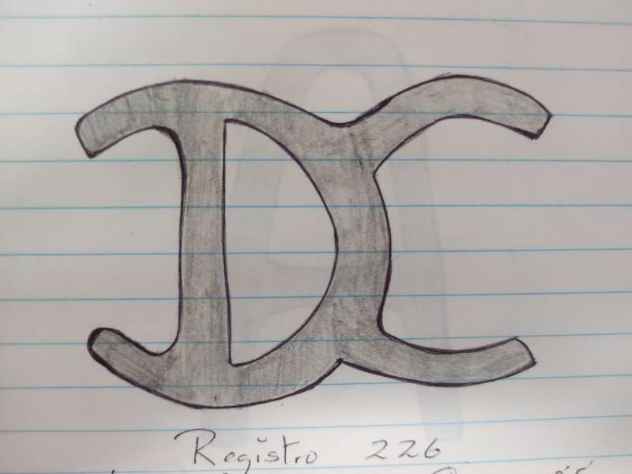 DC
Registro 226